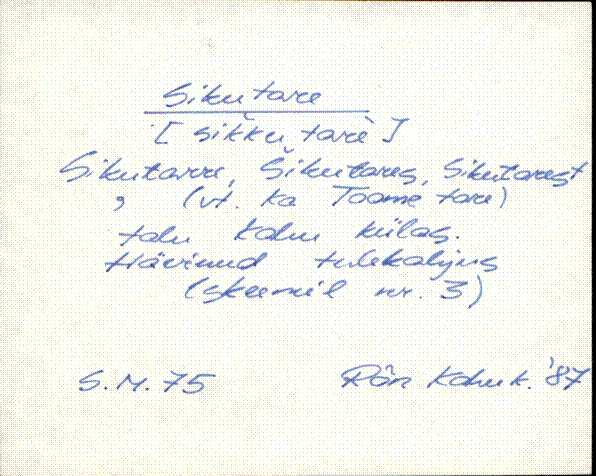 Sikutare
[sikku tarè]
Sikutarre, Sikutares, Sikutarest
, (vt. ka Toome tare)
talu Kahu külas.
Hävinud tulekahjus
(skeemil nr. 3)
S.M. 75 Rõn Kahu k. '87